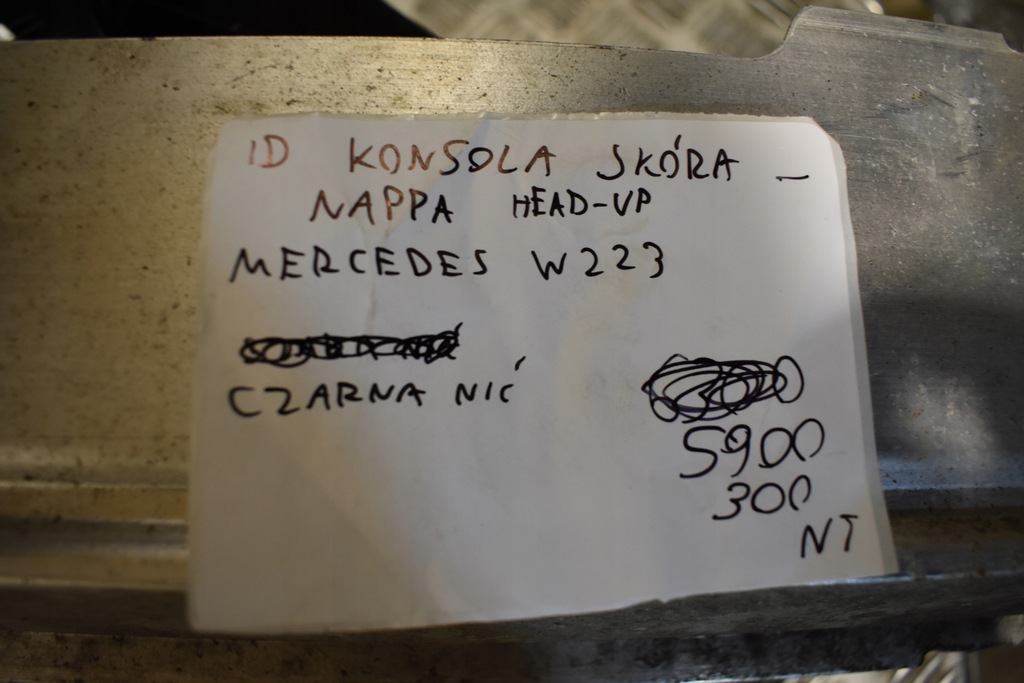 ID KONSOLA SKÓRA –
NAPPA HEAD-UP
MERCEDES W223
CZARNA NIĆ
5900
300
NT